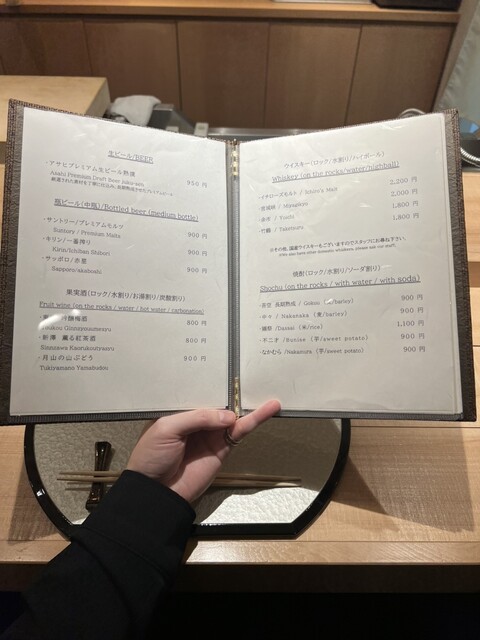 生ビール/BEER
・アサヒプレミアム生ビール熟撰 950 円
Asahi Premium Draft Beer Juku-sen
瓶ビール(中瓶)/Bottled beer (medium bottle)
・サントリー/プレミアムモルツ 900 円
Suntory / Premium Malts
・キリン/一番搾り 900 円
Kirin/Ichiban Shibori
・サッポロ/赤星 900 円
Sapporo/akaboshi
果実酒(ロック/水割り/お湯割り/炭酸割り)
Fruit wine (on the rocks / water / hot water / carbonation)
800 円
・新澤 薫る紅茶酒 800 円
Niizawa Kaorukoutyasyu
・月山の山ぶどう 900 円
Tukiyamano Yamabudou
ウイスキー(ロック/水割り/ハイボール)
Whiskey (on the rocks/water/highball)
・イチローズモルト / Ichiro's Malt 2,200 円
・宮城峡 / Miyagikyo 2,000 円
・余市 / Yoichi 1,800 円
・竹鶴 / Taketsuru 1,800 円
※その他、国産ウイスキーもございますのでスタッフにお尋ね下さい。
焼酎(ロック/水割り/ソーダ割り)
Shochu (on the rocks / with water / with soda)
900 円
/ Nakanaka (麦/barley) 900 円
・獺祭 /Dassai (米/rice) 1,100 円
・不二才 /Bunisee (芋/sweet potato) 900 円
・なかむら /Nakamura (芋/sweet potato) 900 円